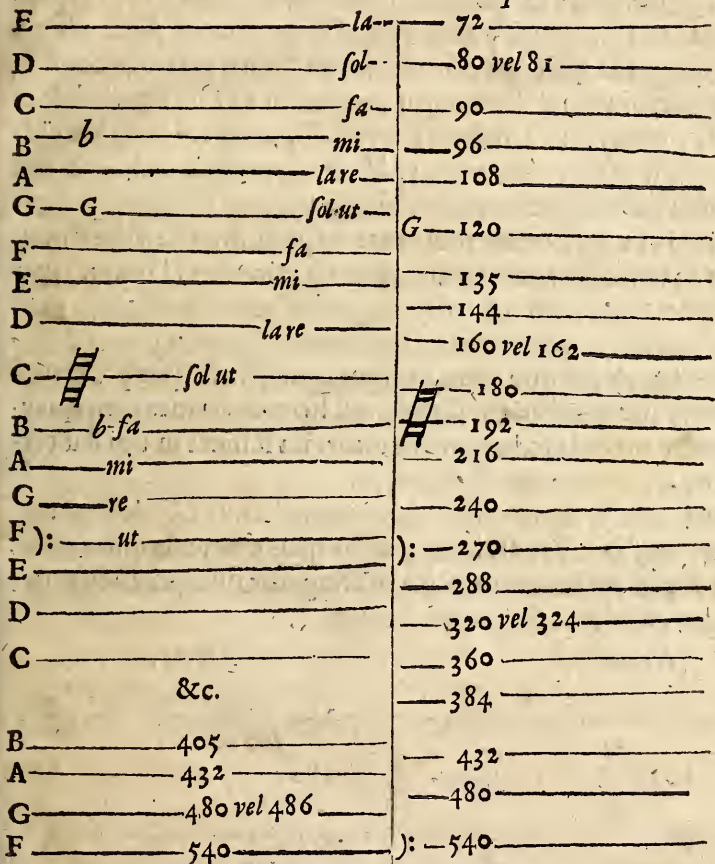 E la
D ſol
C fa
B b mi
A la re
G G ſol ut
F fa
E mi
D la re
C ſol ut
B b fa
A mi
G re
F ): ut
E
D
C
&c.
B 405
A 432
G 480 vel 486
F 540
72
80 vel 81
90
96
108
G 120
135
144
160 vel 162
180
192
216
240
): 270
288
320 vel 324
360
384
432
480
): 540